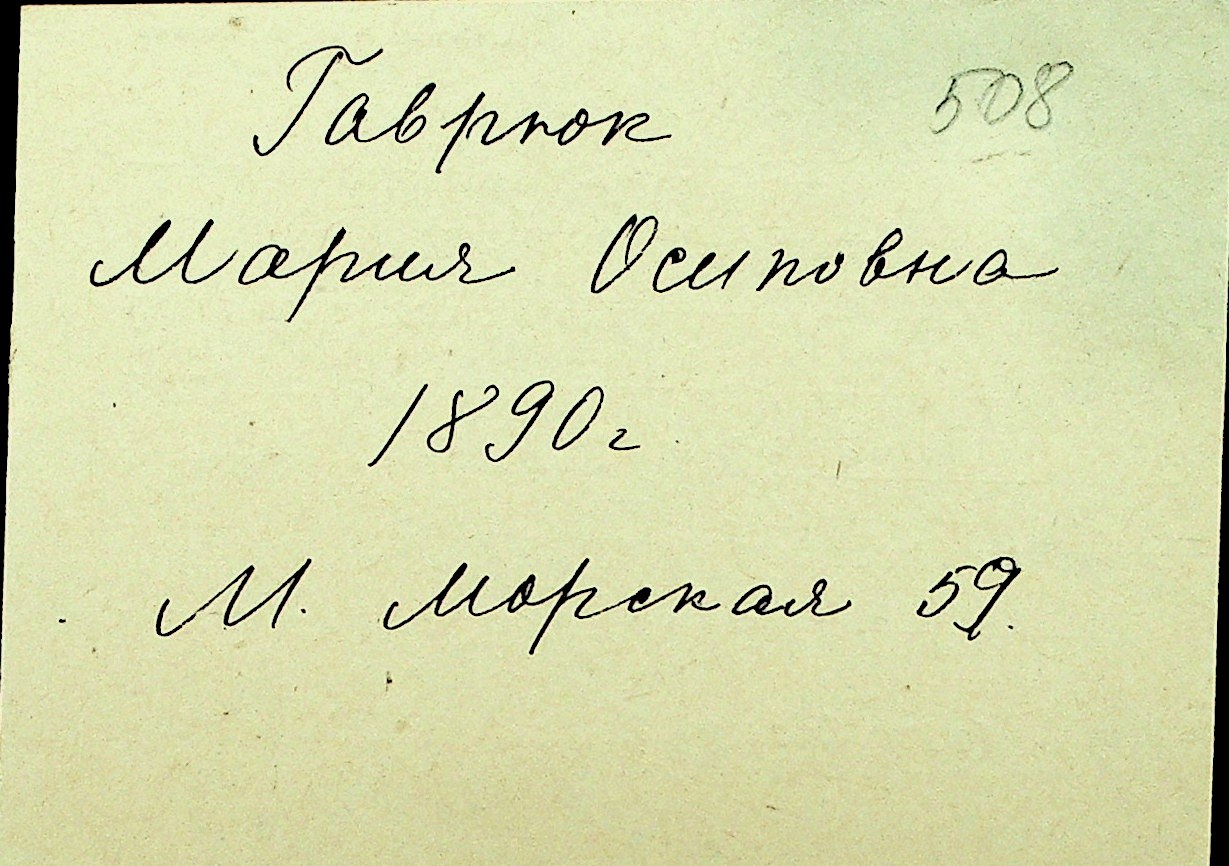 Гаврюк 508
Мария Осиповна
1890г
М. Морская 59.